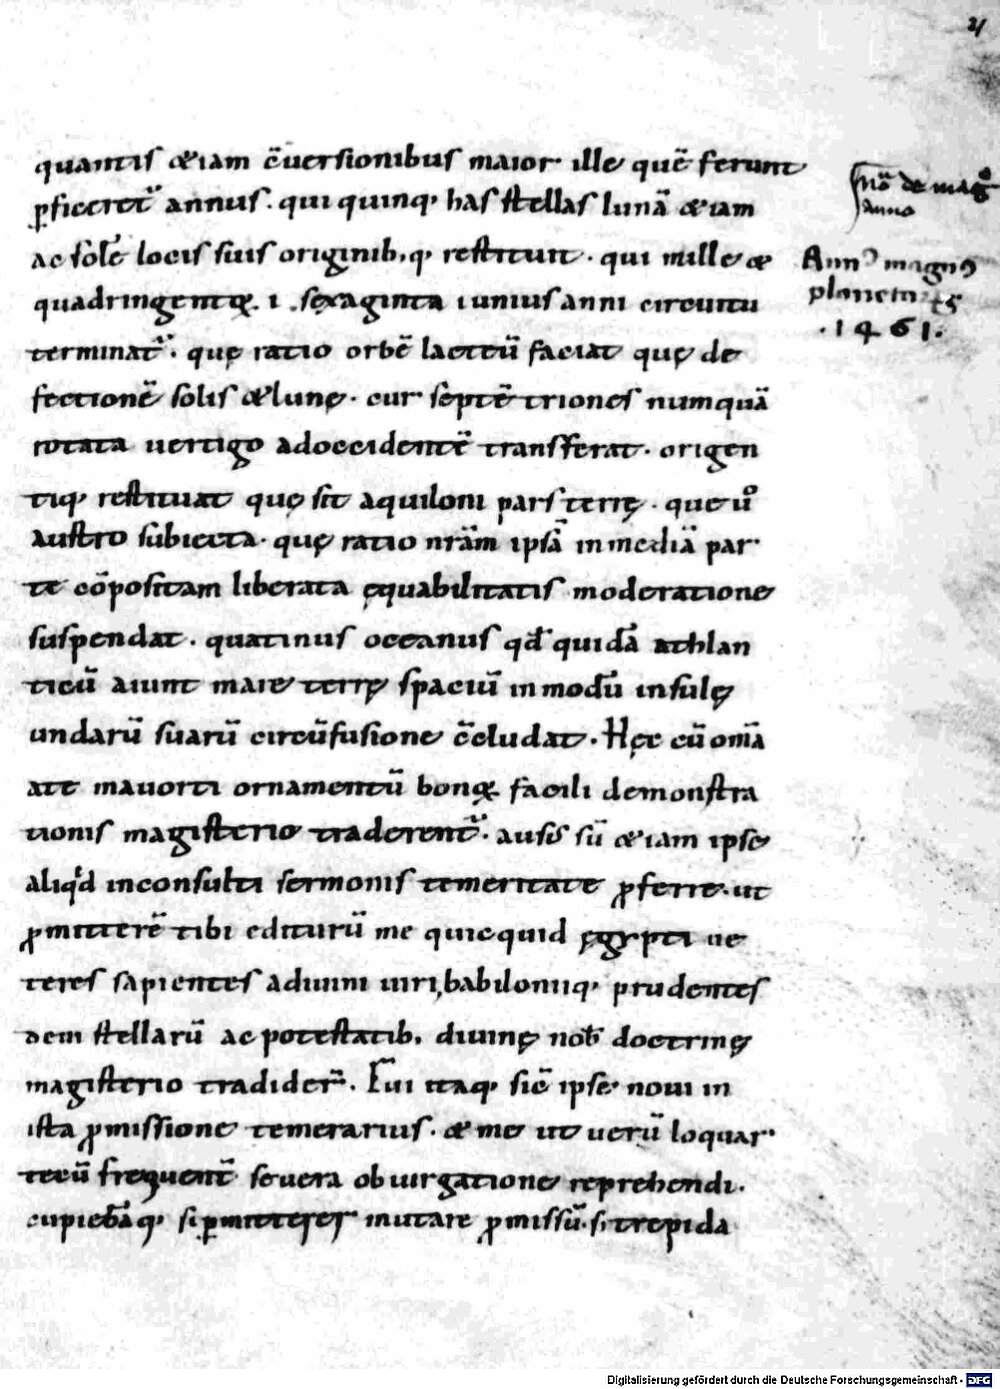 21
quantis &iam c̄uersionibus maior ille quē ferunt
ꝑficeret᷑ annus. qui quinq; has stellas lunā &iam
ac solē locis suis originib; q; restituit. qui mille &
quadringentę. i .sexaginta i unius anni circuitu
terminat᷑. quę ratio orbē lacteū faciat quę de
fectionē solis & lunę. cur septē triones numquā
rotata uertigo adoccidentē transferat. origen
tiq; restituat quę sit aquiloni pars terrę. que u°
austro subiecta. quę ratio nr̄am ipsā inmediā par
te cōpositam librata ęquabilitatis moderatione
suspendat. quatinus oceanus qd̄ quidā athlan
ticū aiunt mare terrę spaciū inmodū insulę
undarū suarū circūfusione c̄cludat. Hęc cū om̄ia
ate mauorti ornamentū bonoꝝ facili demonstra
tionis magisterio traderent᷑. ausus sū &iam ipse
aliqd inconsulti sermonis temeritate ꝓferre. ut
ꝓmitterē tibi editurū me quicquid ęgypti ue
teres sapientes adiuini uiri, babiloniiq; prudentes
dem stellarū ac potestatib; diuinę nob̄ doctrinę
magisterio tradider̄. Fui itaq; sic̄ ipse noui in
ista ꝓmissione temerarius. & me ut uerū loquar
tecū frequent᷑ seuera obiurgatione reprehendi.
cupiebāq; si ꝑmitteres mutare ꝓmissū. si trepida
Nō de mag°
anno
Annꝰ magnꝰ
planetarū
.1461.
Digitalisierung gefördert durch die Deutsche Forschungsgemeinschaft - DFG